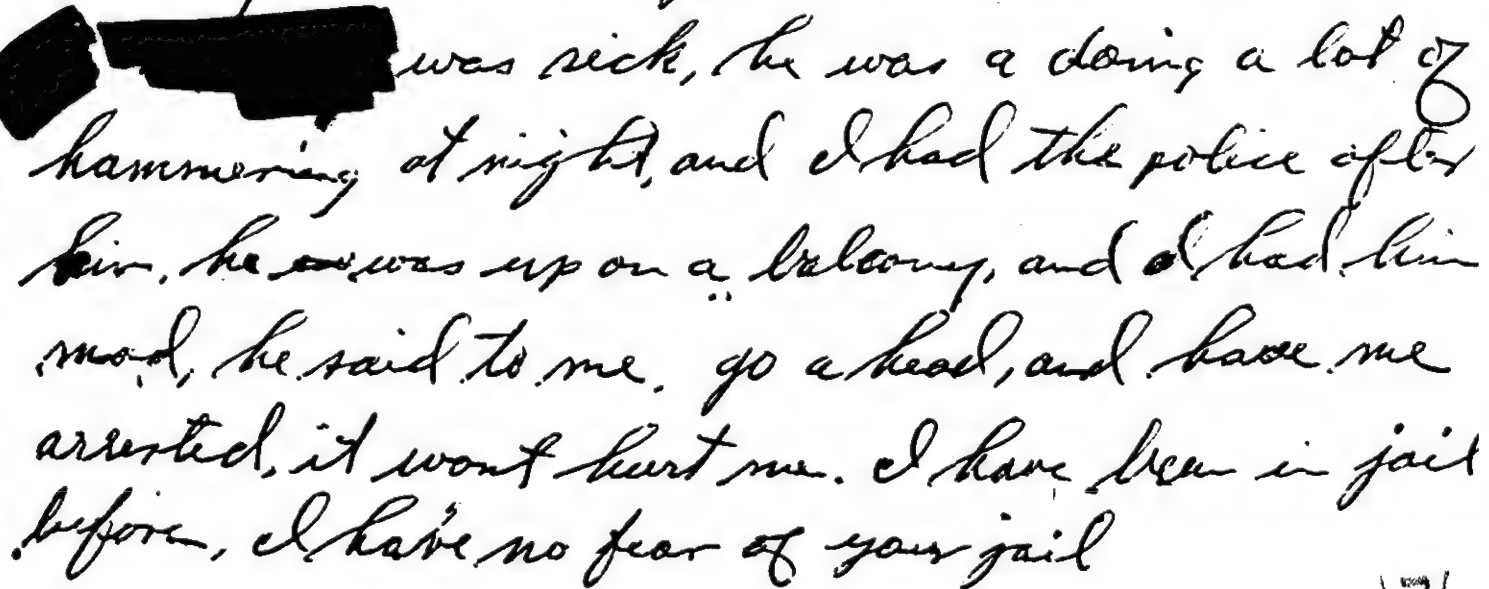 was sick, he was a doing a lot of
hammering at night, and I had the police after
him, he was up on a balcony, and I had him
mad, he said to me. go a head, and have me
arrested, it wont hurt me. I have been in jail
before, I have no fear of your jail